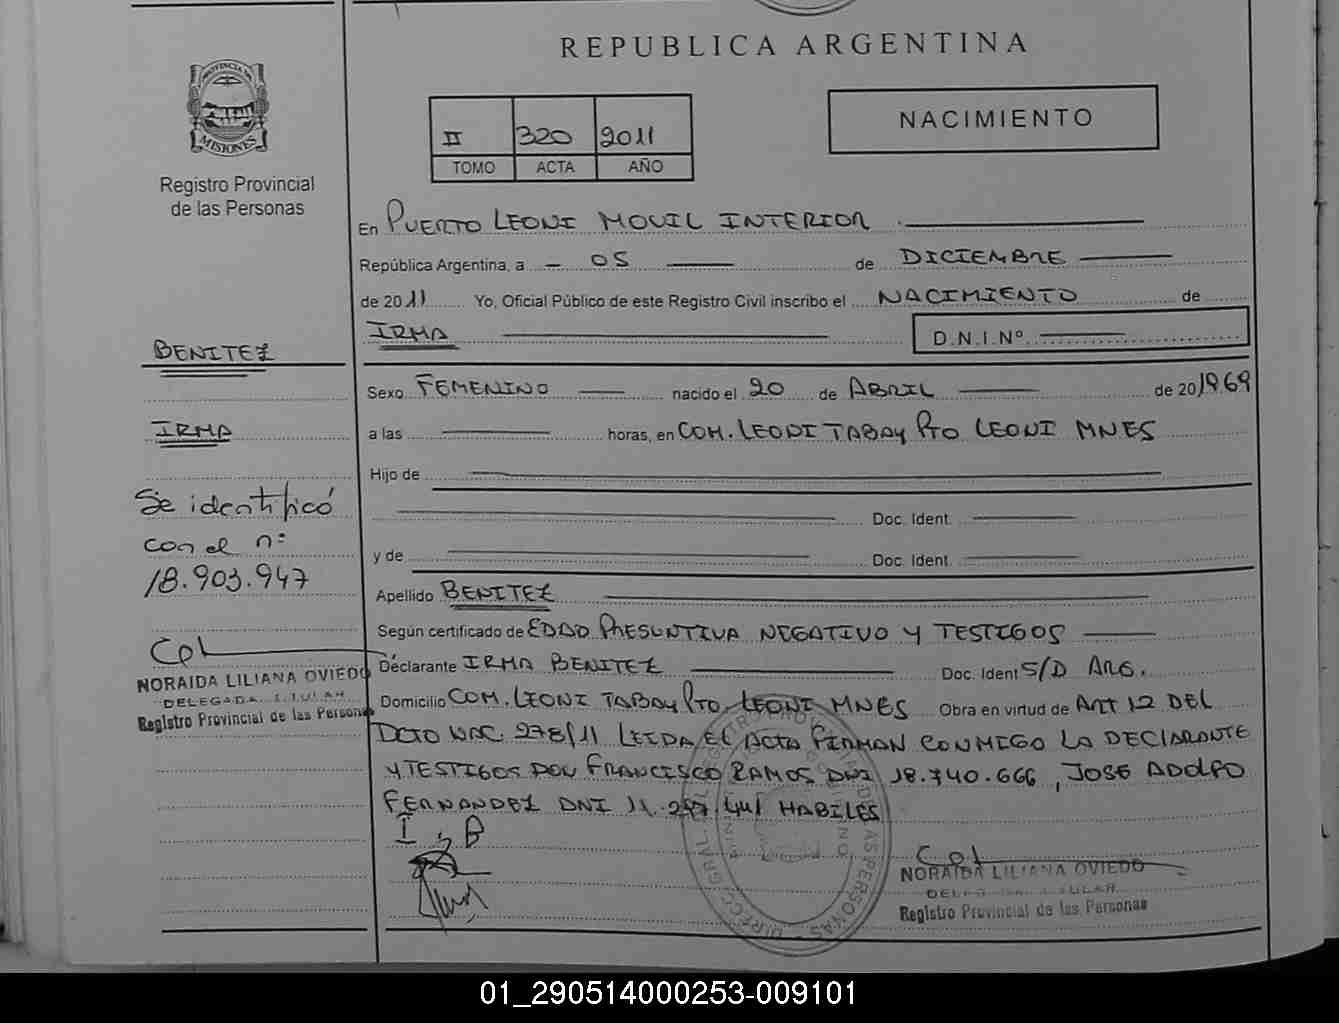 REPUBLICA ARGENTINA
PROVINCIA DE
MISIONES
Registro Provincial
de las Personas
II 320 2011
TOMO ACTA AÑO
NACIMIENTO
En PUERTO LEONI MOVIL INTERIOR
República Argentina, a 05 de DICIEMBRE
de 2011 Yo, Oficial Público de este Registro Civil inscribo el NACIMIENTO de
IRMA D.N.I.Nº
BENITEZ
IRMA
Se identificó
con el nº
18.903.947
NORAIDA LILIANA OVIEDO
DELEGADA TITULAR
Registro Provincial de las Personas
Sexo FEMENINO nacido el 20 de ABRIL de 20 1969
a las horas, en COM. LEONI TABAY PTO LEONI MNES
Hijo de
Doc. Ident.
y de Doc. Ident.
Apellido BENITEZ
Según certificado de EDAD PRESUNTIVA NEGATIVO Y TESTIGOS
Declarante IRMA BENITEZ Doc. Ident S/D ARG.
Domicilio COM. LEONI TABAY PTO. LEONI MNES Obra en virtud de ART 12 DEL
DCTO NAC. 278/11 LEIDA EL ACTA FIRMAN CONMIGO LA DECLARANTE
Y TESTIGOS DON FRANCISCO RAMOS DNI 18.740.666, JOSE ADOLFO
FERNANDEZ DNI 11. HABILES
I B
NORAIDA LILIANA OVIEDO
Registro Provincial de las Personas
01_290514000253-009101